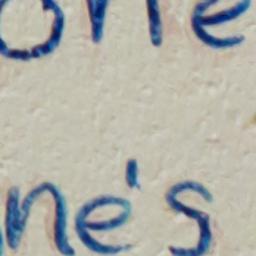 one
ne's